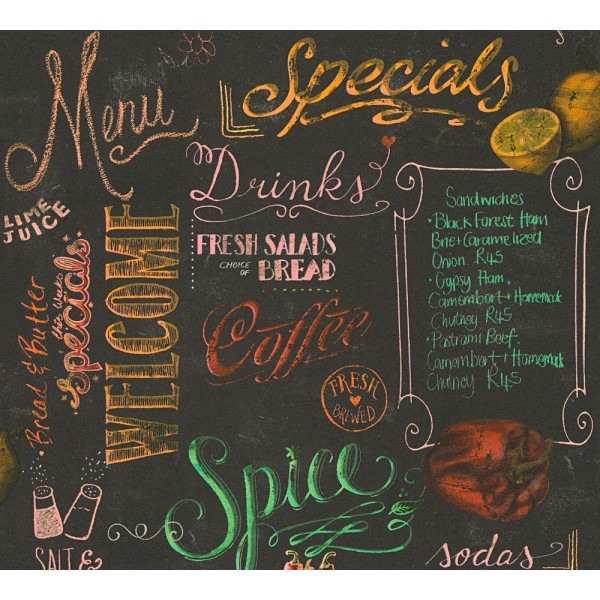 Menu
Specials
LIME
JUICE
Drinks
FRESH SALADS
CHOICE
OF
BREAD
Coffee
FRESH
BREWED
WELCOME
this Weeks
Specials
Bread & Butter
Sandwiches
• Black Forest Ham
Brie + Caramelized
Onion R45
• Gypsy Ham,
Camembert + Homemak
Chutney R45
• Pastrami Beef,
Camembert + Homemak
Chutney R45
Spice
SALT &
sodas